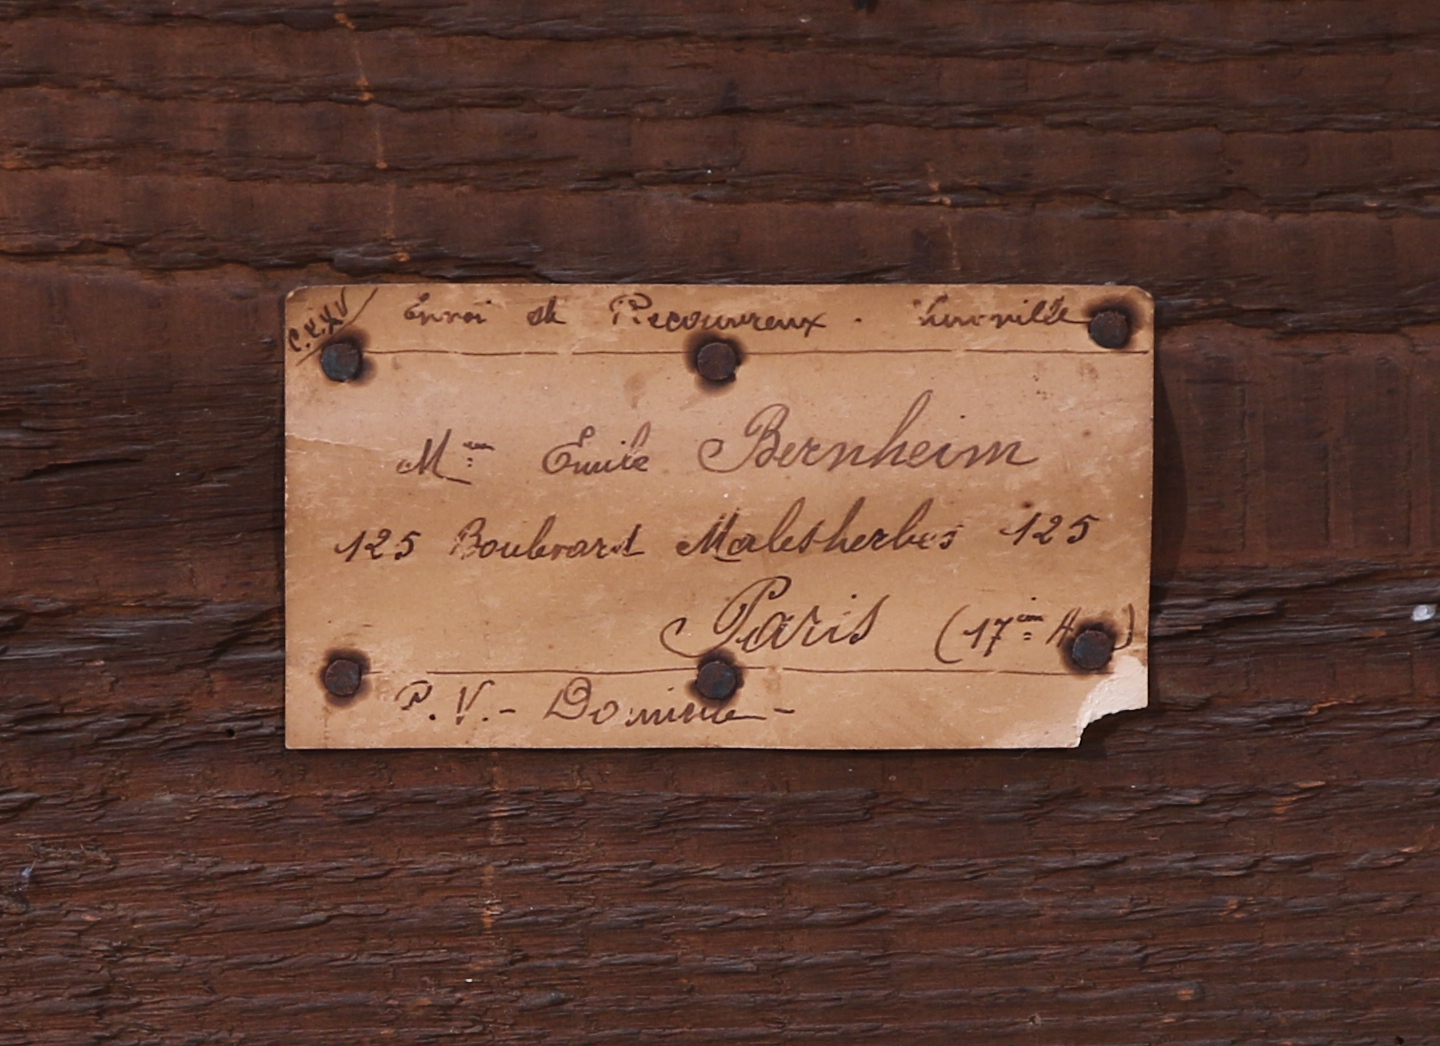 C.XXV
Envoi de Recouvreux. Lunéville
Mme Emile Bernheim
125 Boulevard Malesherbes 125
Paris (17ème A )
P.V.- Domicile-